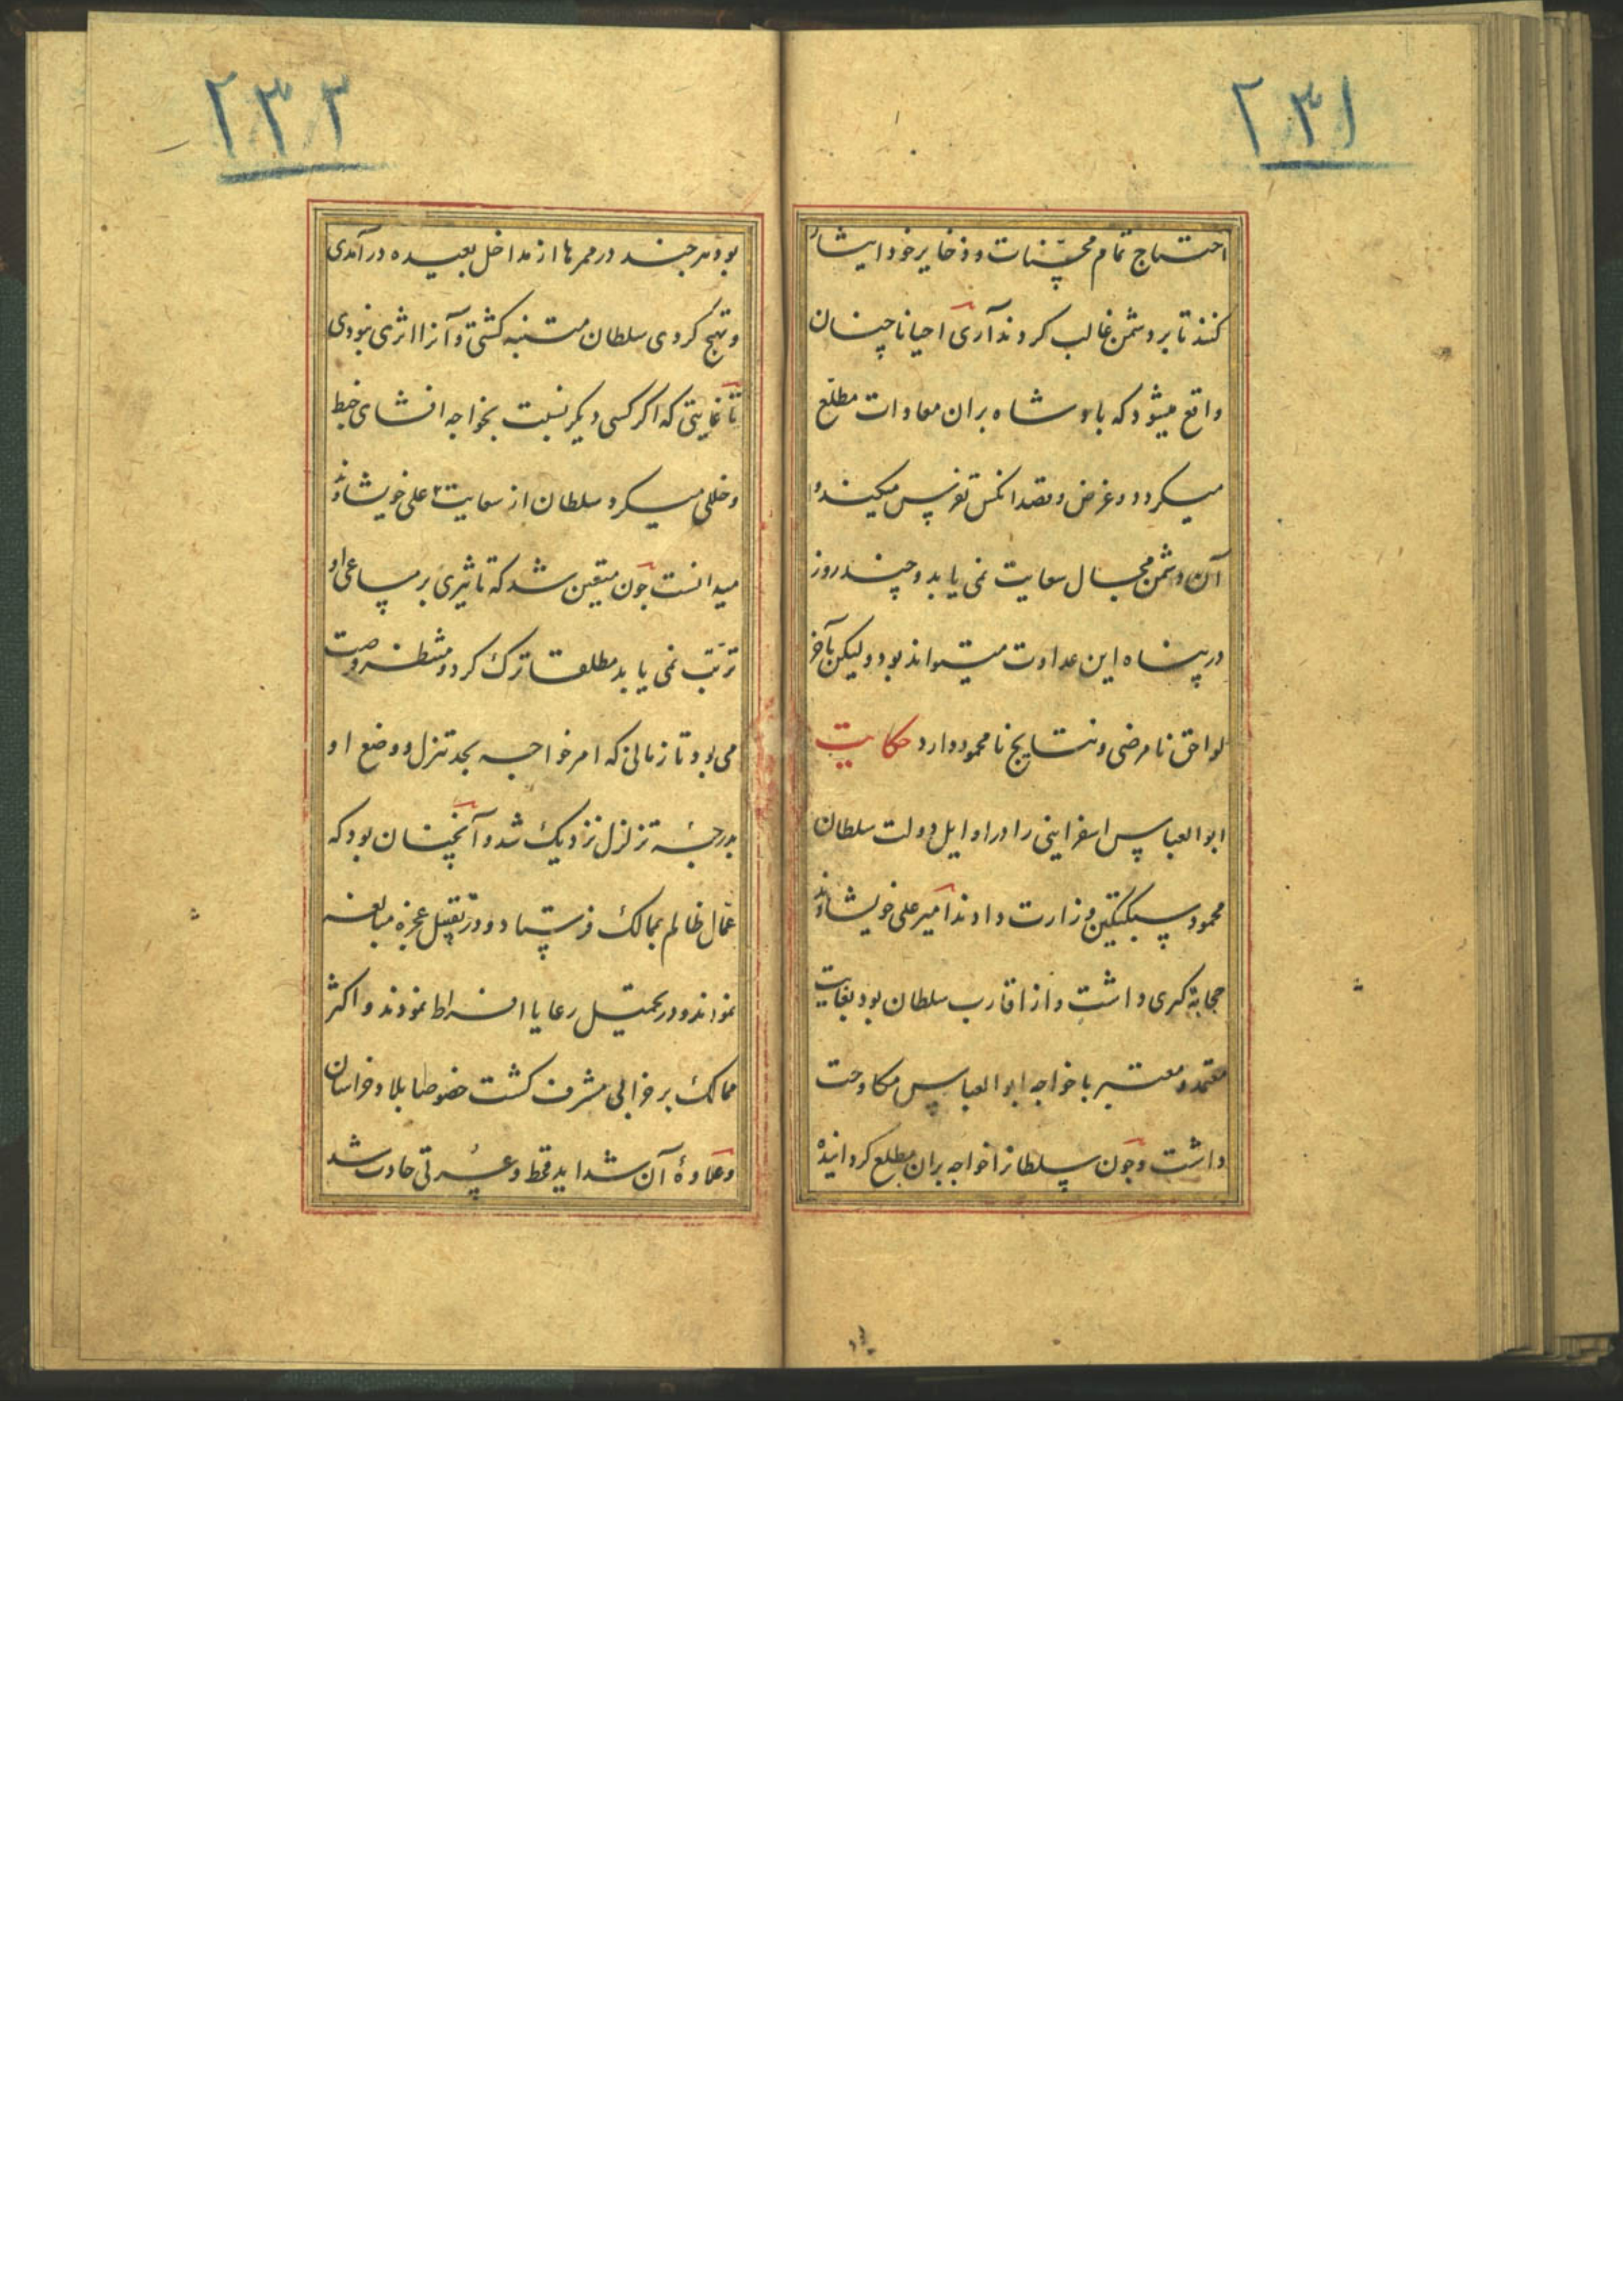 ۲۳۱
احتیاج تمام مخزنات و ذخایر خود ایشار
کنند تا بر دشمن غالب کردند آری احیانا چنان
واقع میشود که پادشاه بران معادات مطلع
میکردد و غرض و قصد انکس تفرس میکند و
آن دشمن مجال سعایت نمی یابد و چند روز
در پناه این عداوت میتواند بود ولیکن بآخر
لواحق نامرضی و نتایج نامحمود دارد حکایت
ابوالعباس اسفراینی را در اوایل دولت سلطان
محمود سبکتکین وزارت دادند امیر علی خویشاوند
حجابة کبری داشت و از اقارب سلطان بود بغایت
معتمد و معتبر با خواجه ابوالعباس مکاوحت
داشت و چون سلطانرا خواجه بران مطلع کردانیده
۲۳۲
بود هر چند در ممرها از مداخل بعیده در آمدی
و تهیج کردی سلطان متنبه کشتی و آنرا اثری نبودی
تا غایتی که اکر کسی دیکر نسبت بخواجه افشای خبط
و خللی میکرد سلطان از سعایت علی خویشاوند
میدانست چون متیقن شد که تاثیری بر مساعی او
ترتب نمی یابد مطلقا ترک کرد و منتظر فرصت
می بود تا زمانی که امر خواجه بحد تنزل و وضع او
بدرجهٔ تزلزل نزدیک شد و آنچنان بود که
عمال ظالم بممالک فرستاد و در تثقیل عجزه مبالغه
نمودند و در تحمیل رعایا افراط نمودند و اکثر
ممالک بر خرابی مشرف کشت خصوصا بلاد خراسان
و علاوهٔ آن شداید قحط و عسرتی حادث شد